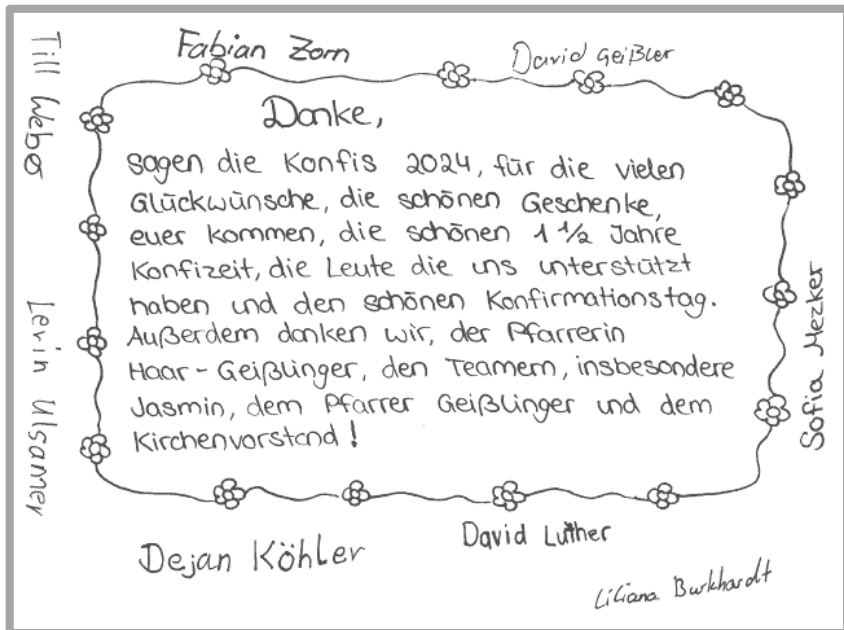 Fabian Zorn
David Geißler
Till Weber
Danke,
sagen die Konfis 2024, für die vielen
Glückwünsche, die schönen Geschenke,
euer kommen, die schönen 1 1/2 Jahre
Konfizeit, die Leute die uns unterstützt
haben und den schönen Konfirmationstag.
Außerdem danken wir, der Pfarrerin
Haar-Geißlinger, den Teamern, insbesondere
Jasmin, dem Pfarrer Geißlinger und dem
Kirchenvorstand!
Levin Ulsamer
Sofia Mezker
Dejan Köhler
David Luther
Liliana Burkhardt